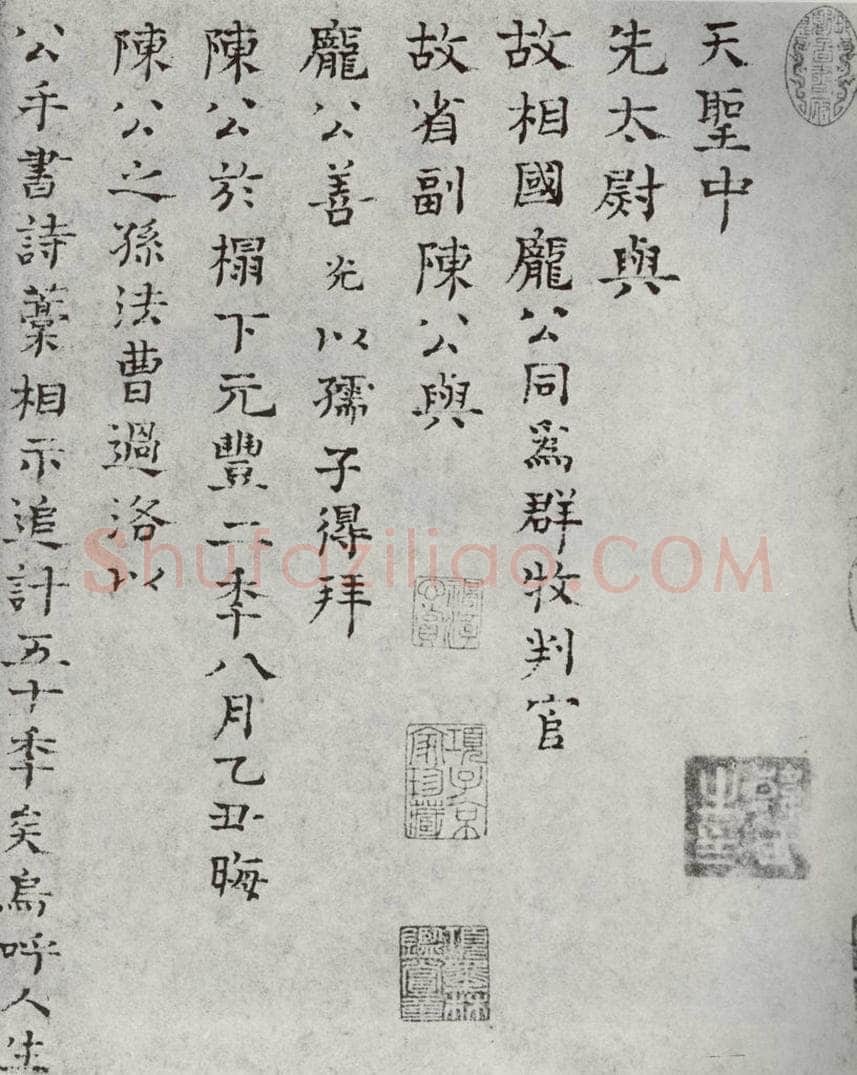 天聖中
先太尉與
故相國龐公同爲群牧判官
故省副陳公與
龐公善光以孺子得拜
陳公於榻下元豐二秊八月乙丑晦
陳公之孫法曹過洛以
公手書詩藁相示追計五十秊矣烏呼人生
項子京家珍藏
Shufaziliao.COM